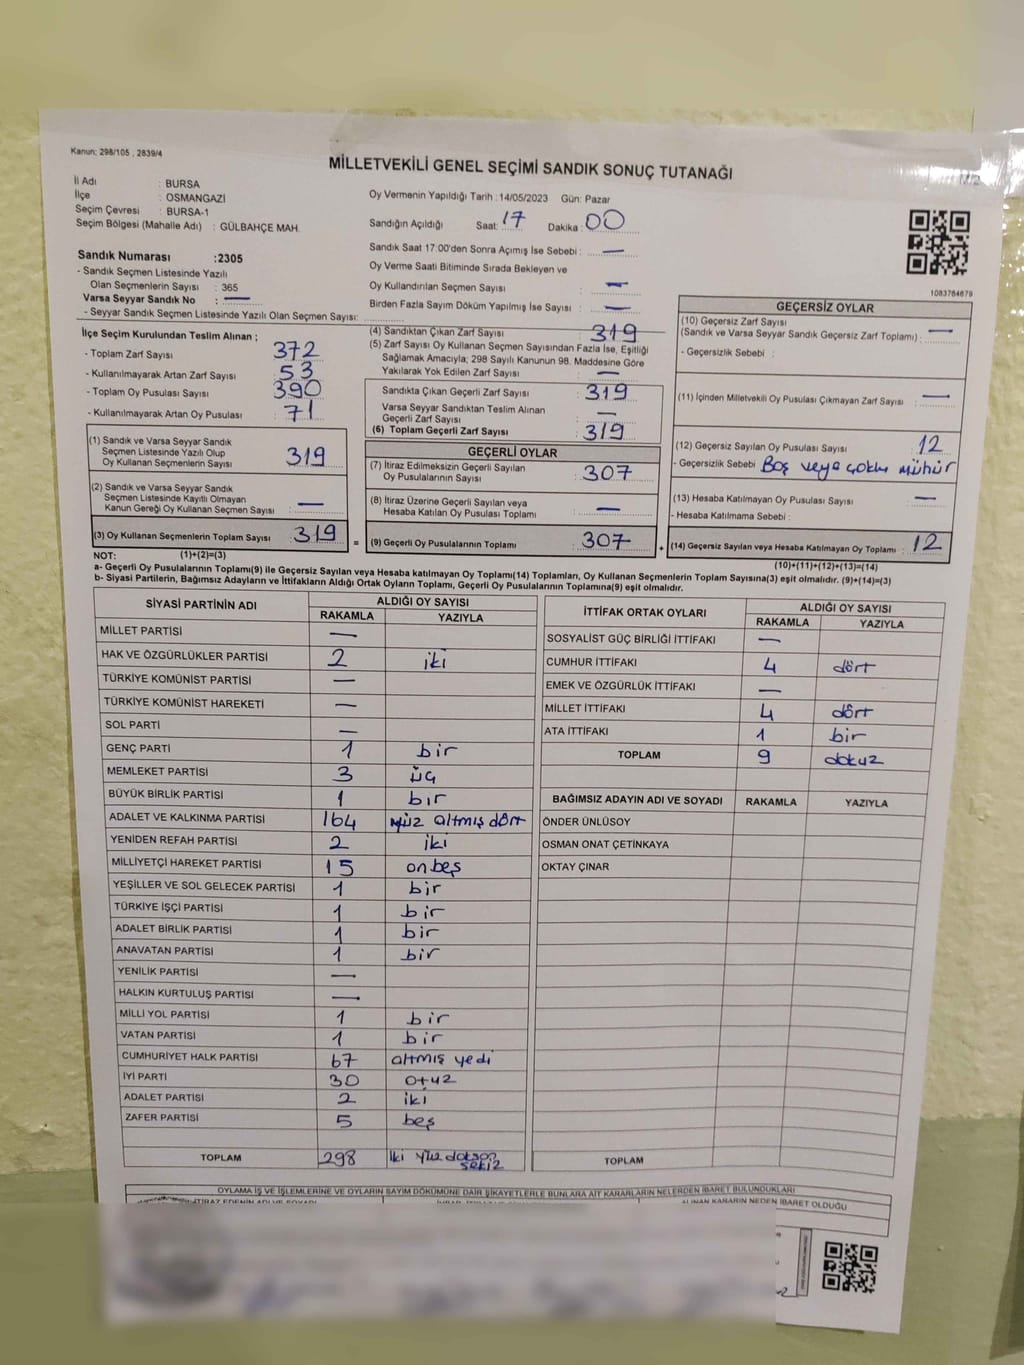 Kanun: 298/105 , 2839/4
MİLLETVEKİLİ GENEL SEÇİMİ SANDIK SONUÇ TUTANAĞI
İl Adı : BURSA
İlçe : OSMANGAZİ
Seçim Çevresi : BURSA-1
Seçim Bölgesi (Mahalle Adı) : GÜLBAHÇE MAH.
Oy Vermenin Yapıldığı Tarih :14/05/2023 Gün: Pazar
Sandığın Açıldığı Saat: 17 Dakika : 00
Sandık Saat 17:00'den Sonra Açımış İse Sebebi : —
Oy Verme Saati Bitiminde Sırada Bekleyen ve
Oy Kullandırılan Seçmen Sayısı : —
Birden Fazla Sayım Döküm Yapılmış İse Sayısı : —
1083784679
Sandık Numarası :2305
- Sandık Seçmen Listesinde Yazılı
Olan Seçmenlerin Sayısı : 365
Varsa Seyyar Sandık No : —
- Seyyar Sandık Seçmen Listesinde Yazılı Olan Seçmen Sayısı:
İlçe Seçim Kurulundan Teslim Alınan ;
- Toplam Zarf Sayısı : 372
- Kullanılmayarak Artan Zarf Sayısı : 53
- Toplam Oy Pusulası Sayısı : 390
- Kullanılmayarak Artan Oy Pusulası : 71
(1) Sandık ve Varsa Seyyar Sandık
Seçmen Listesinde Yazılı Olup
Oy Kullanan Seçmenlerin Sayısı : 319
(2) Sandık ve Varsa Seyyar Sandık
Seçmen Listesinde Kayıtlı Olmayan
Kanun Gereği Oy Kullanan Seçmen Sayısı : —
(3) Oy Kullanan Seçmenlerin Toplam Sayısı : 319
(4) Sandıktan Çıkan Zarf Sayısı : 319
(5) Zarf Sayısı Oy Kullanan Seçmen Sayısından Fazla İse, Eşitliği
Sağlamak Amacıyla; 298 Sayılı Kanunun 98. Maddesine Göre
Yakılarak Yok Edilen Zarf Sayısı : —
Sandıkta Çıkan Geçerli Zarf Sayısı : 319
Varsa Seyyar Sandıktan Teslim Alınan
Geçerli Zarf Sayısı : —
(6) Toplam Geçerli Zarf Sayısı : 319
GEÇERLİ OYLAR
(7) İtiraz Edilmeksizin Geçerli Sayılan
Oy Pusulalarının Sayısı : 307
(8) İtiraz Üzerine Geçerli Sayılan veya
Hesaba Katılan Oy Pusulası Toplamı : —
= (9) Geçerli Oy Pusulalarının Toplamı : 307 +
GEÇERSİZ OYLAR
(10) Geçersiz Zarf Sayısı
(Sandık ve Varsa Seyyar Sandık Geçersiz Zarf Toplamı) : —
- Geçersizlik Sebebi :
(11) İçinden Milletvekili Oy Pusulası Çıkmayan Zarf Sayısı : —
(12) Geçersiz Sayılan Oy Pusulası Sayısı : 12
- Geçersizlik Sebebi : Boş veya çoklu mühür
(13) Hesaba Katılmayan Oy Pusulası Sayısı : —
- Hesaba Katılmama Sebebi :
(14) Geçersiz Sayılan veya Hesaba Katılmayan Oy Toplamı : 12
NOT: (1)+(2)=(3)
(10)+(11)+(12)+(13)=(14)
a- Geçerli Oy Pusulalarının Toplamı(9) ile Geçersiz Sayılan veya Hesaba katılmayan Oy Toplamı(14) Toplamları, Oy Kullanan Seçmenlerin Toplam Sayısına(3) eşit olmalıdır. (9)+(14)=(3)
b- Siyasi Partilerin, Bağımsız Adayların ve İttifakların Aldığı Ortak Oyların Toplamı, Geçerli Oy Pusulalarının Toplamına(9) eşit olmalıdır.
SİYASİ PARTİNİN ADI ALDIĞI OY SAYISI
RAKAMLA YAZIYLA
MİLLET PARTİSİ —
HAK VE ÖZGÜRLÜKLER PARTİSİ 2 iki
TÜRKİYE KOMÜNİST PARTİSİ —
TÜRKİYE KOMÜNİST HAREKETİ —
SOL PARTİ —
GENÇ PARTİ 1 bir
MEMLEKET PARTİSİ 3 üç
BÜYÜK BİRLİK PARTİSİ 1 bir
ADALET VE KALKINMA PARTİSİ 164 yüz altmış dört
YENİDEN REFAH PARTİSİ 2 iki
MİLLİYETÇİ HAREKET PARTİSİ 15 onbeş
YEŞİLLER VE SOL GELECEK PARTİSİ 1 bir
TÜRKİYE İŞÇİ PARTİSİ 1 bir
ADALET BİRLİK PARTİSİ 1 bir
ANAVATAN PARTİSİ 1 bir
YENİLİK PARTİSİ —
HALKIN KURTULUŞ PARTİSİ —
MİLLİ YOL PARTİSİ 1 bir
VATAN PARTİSİ 1 bir
CUMHURİYET HALK PARTİSİ 67 altmış yedi
İYİ PARTİ 30 otuz
ADALET PARTİSİ 2 iki
ZAFER PARTİSİ 5 beş
TOPLAM 298 İki yüz doksan sekiz
İTTİFAK ORTAK OYLARI ALDIĞI OY SAYISI
RAKAMLA YAZIYLA
SOSYALİST GÜÇ BİRLİĞİ İTTİFAKI —
CUMHUR İTTİFAKI 4 dört
EMEK VE ÖZGÜRLÜK İTTİFAKI —
MİLLET İTTİFAKI 4 dört
ATA İTTİFAKI 1 bir
TOPLAM 9 dokuz
BAĞIMSIZ ADAYIN ADI VE SOYADI RAKAMLA YAZIYLA
ÖNDER ÜNLÜSOY
OSMAN ONAT ÇETİNKAYA
OKTAY ÇINAR
TOPLAM
OYLAMA İŞ VE İŞLEMLERİNE VE OYLARIN SAYIM DÖKÜMÜNE DAİR ŞİKAYETLERLE BUNLARA AİT KARARLARIN NELERDEN İBARET BULUNDUKLARI
ALINAN KARARIN NEDEN İBARET OLDUĞU